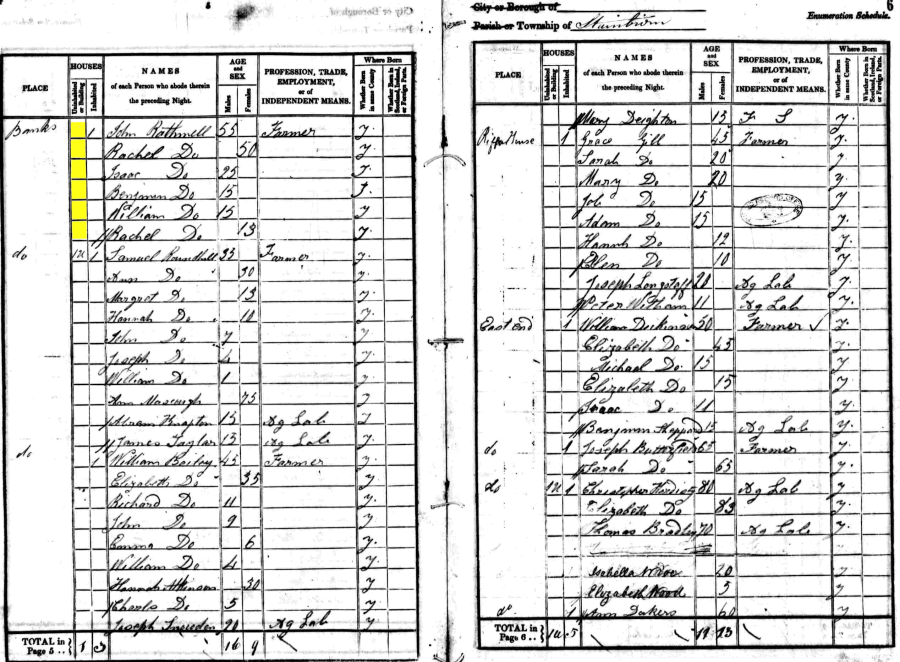 City or Borough of
Parish or Township of Stainburn
6
Enumeration Schedule.
PLACE
HOUSES
Uninhabited or Building
Inhabited
NAMES
of each Person who abode therein
the preceding Night.
AGE and SEX
Males
Females
PROFESSION, TRADE,
EMPLOYMENT,
or of
INDEPENDENT MEANS.
Where Born
Whether Born in same County
Whether Born in Scotland, Ireland, or Foreign Parts.
Banks 1 John Rothmell 55 Farmer y.
Rachel Do 50 y.
Isaac Do 25 y.
Benjamin Do 15 y.
William Do 15 y
Rachel Do 13 y.
do 1u 1 Samuel Roundhill 35 Farmer y.
Ann Do 30 y.
Margret Do 13 y.
Hannah Do 10 y.
John Do 7 y
Joseph Do 4 y.
William Do 1 y
Ann 75 y.
Abram Knapton 15 Ag Lab y
James Taylor 13 Ag Lab y.
do 1 William Bailey 45 Farmer y.
Elizabeth Do 35 y
Richard Do 11 y.
John Do 9 y
Emma Do 6 y
William Do 4 y.
Hannah Atkinson 30 y
Charls Do 5 y
Joseph Snowden 20 Ag Lab y
TOTAL in Page 5 .. 1 3 16 9
PLACE
HOUSES
Uninhabited or Building
Inhabited
NAMES
of each Person who abode therein
the preceding Night.
AGE and SEX
Males
Females
PROFESSION, TRADE,
EMPLOYMENT,
or of
INDEPENDENT MEANS.
Where Born
Whether Born in same County
Whether Born in Scotland, Ireland, or Foreign Parts.
Mary Deighton 15 F S y.
Riffa House 1 Grace Gill 45 Farmer y.
Sarah Do 20 y
Mary Do 20 y.
Job Do 15 y
Adam Do 15 y.
Hannah Do 12 y.
Ellen Do 10 y
Joseph Longstaff 20 Ag Lab y.
Peter Witham 11 Ag Lab y.
East End 1 William Dickinson 50 Farmer y.
Elizabeth Do 45 y.
Michael Do 15 y
Elizabeth Do 15 y
Isaac Do 11 y.
Benjamin Sheppard 15 Ag Lab y.
do 1 Joseph Butterfield 65 Farmer y
Sarah Do 65 y.
do 1u 1 Christopher 80 Ag Lab y
Elizabeth Do y
Thomas Bradley 70 Ag Lab y
Isabella Wood 20 y
Elizabeth Wood 5 y.
do 1 Ann Dakers 60 y
TOTAL in Page 6 .. 1u 5 13